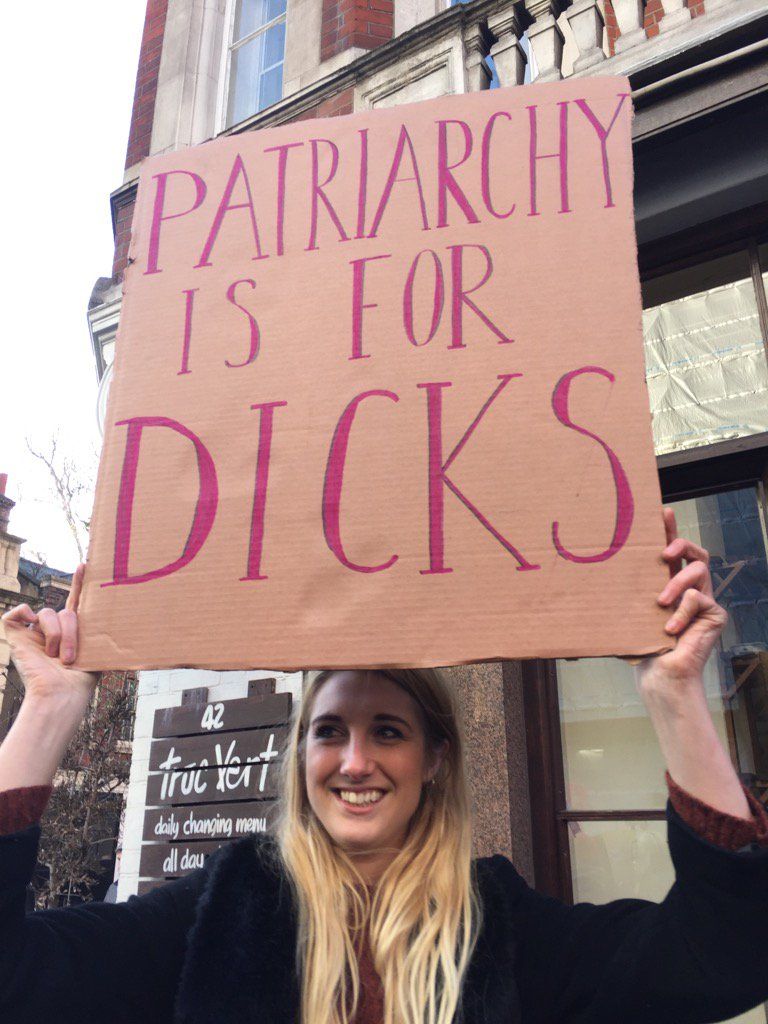 PATRIARCHY
IS FOR
DICKS
42
truc vert
daily changing menu
all day